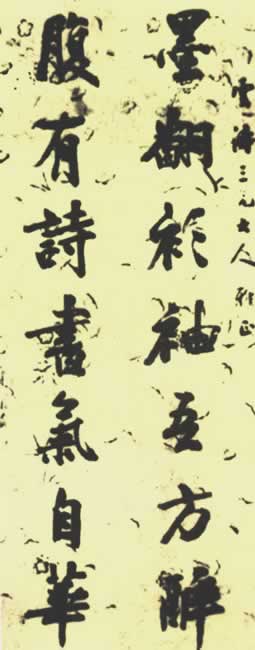 雲濤三兄大人雅正
墨翻衫袖吾方醉
腹有詩書氣自華